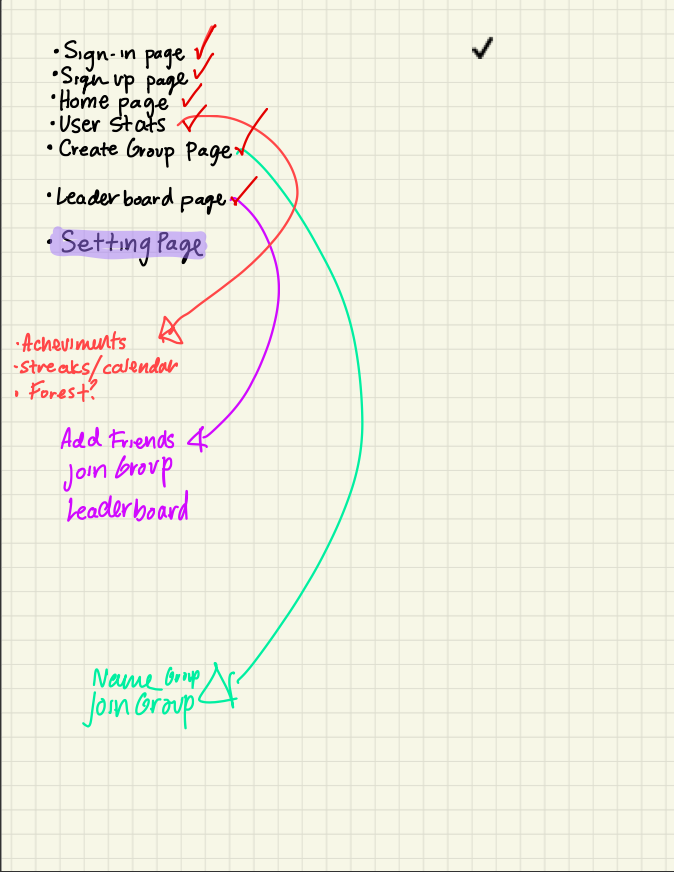 • Sign-in page ✓
• Sign up page ✓
• Home page ✓
• User Stats ✓
• Create Group Page ✓
• Leaderboard page ✓
• Setting Page
• Acheviments
• streaks/calendar
• Forest?
Add Friends
Join Group
Leaderboard
Name Group
Join Group